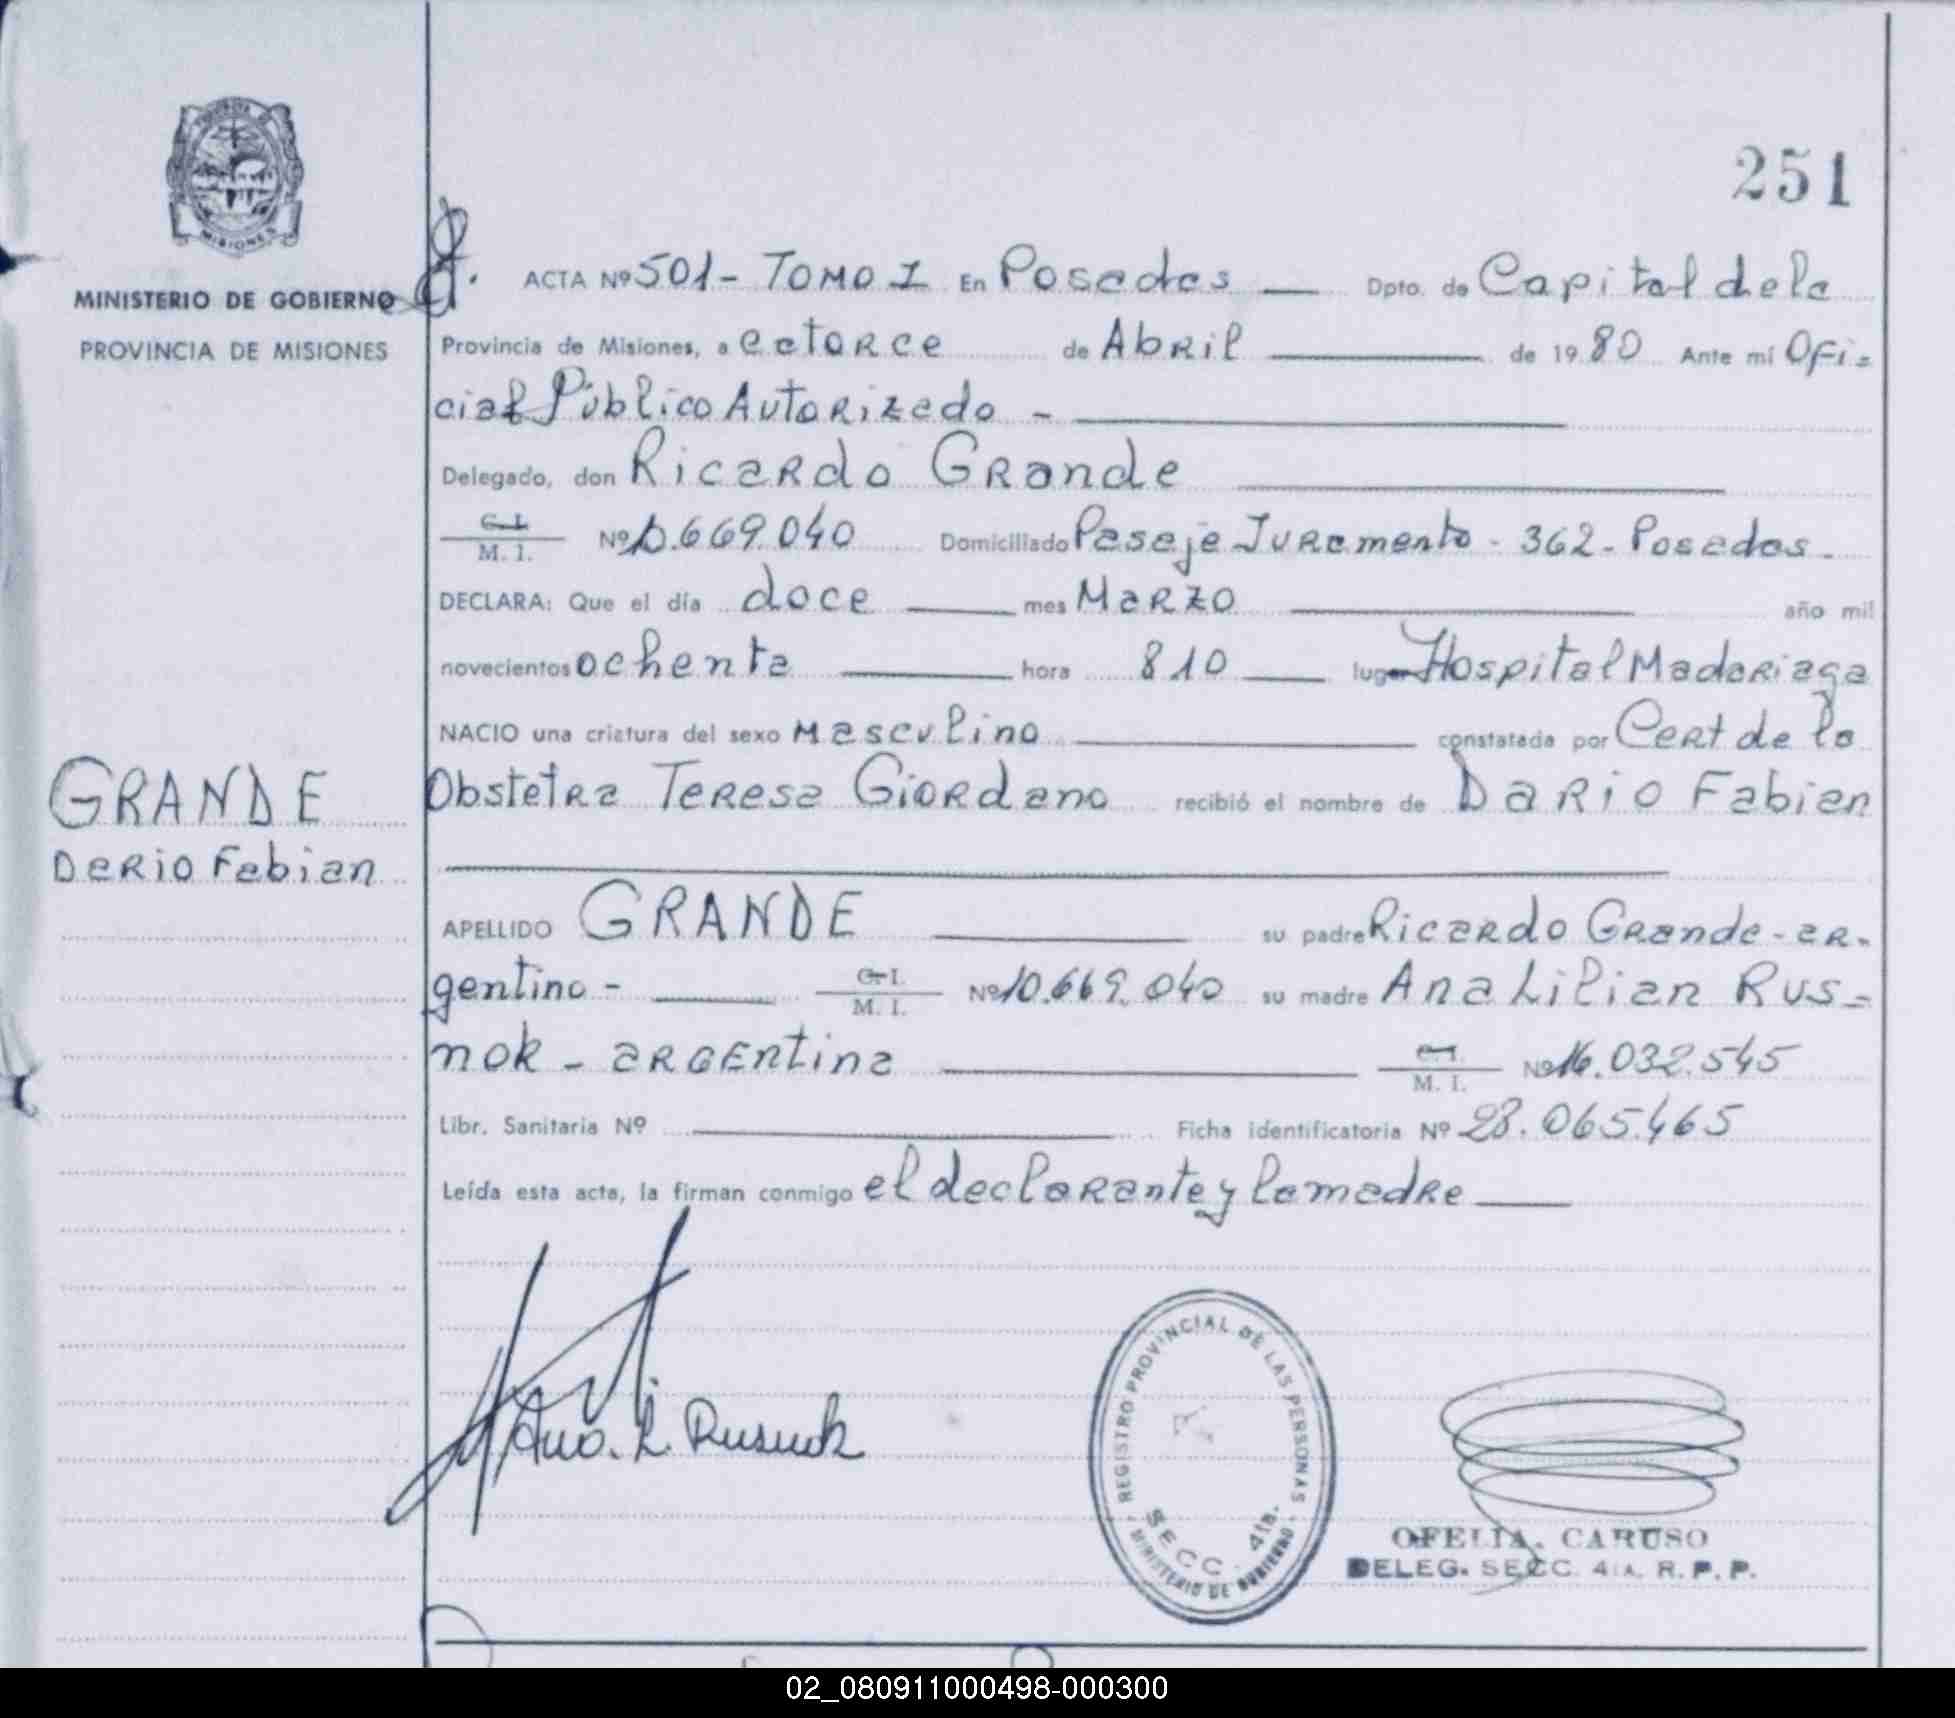 251
MISIONES
MINISTERIO DE GOBIERNO
PROVINCIA DE MISIONES
ACTA Nº 501 - TOMO I En Posadas Dpto. de Capital de la
Provincia de Misiones, a catorce de Abril de 1980 Ante mí Ofi=
cial Público Autorizado -
Delegado, don Ricardo Grande
C. I. M. I. Nº 10.669.040 Domiciliado Pasaje Juramento - 362 - Posadas -
DECLARA: Que el día doce mes Marzo año mil
novecientos ochenta hora 810 lugar Hospital Madariaga
NACIO una criatura del sexo Masculino constatada por Cert de la
Obstetra Teresa Giordano recibió el nombre de Dario Fabian
GRANDE
Dario Fabian
APELLIDO GRANDE su padre Ricardo Grande - ar-
gentino - C. I. M. I. Nº 10.669.040 su madre Ana Lilian Rus=
nok - argentina M. I. Nº 16.032.545
Libr. Sanitaria Nº Ficha identificatoria Nº 28.065.465
Leída esta acta, la firman conmigo el declarante y la madre
Ana. L. Rusnok
REGISTRO PROVINCIAL DE LAS PERSONAS
SECC. 4ta.
MINISTERIO DE GOBIERNO
OFELIA. CARUSO
DELEG. SECC. 4TA. R. P. P.
02_080911000498-000300